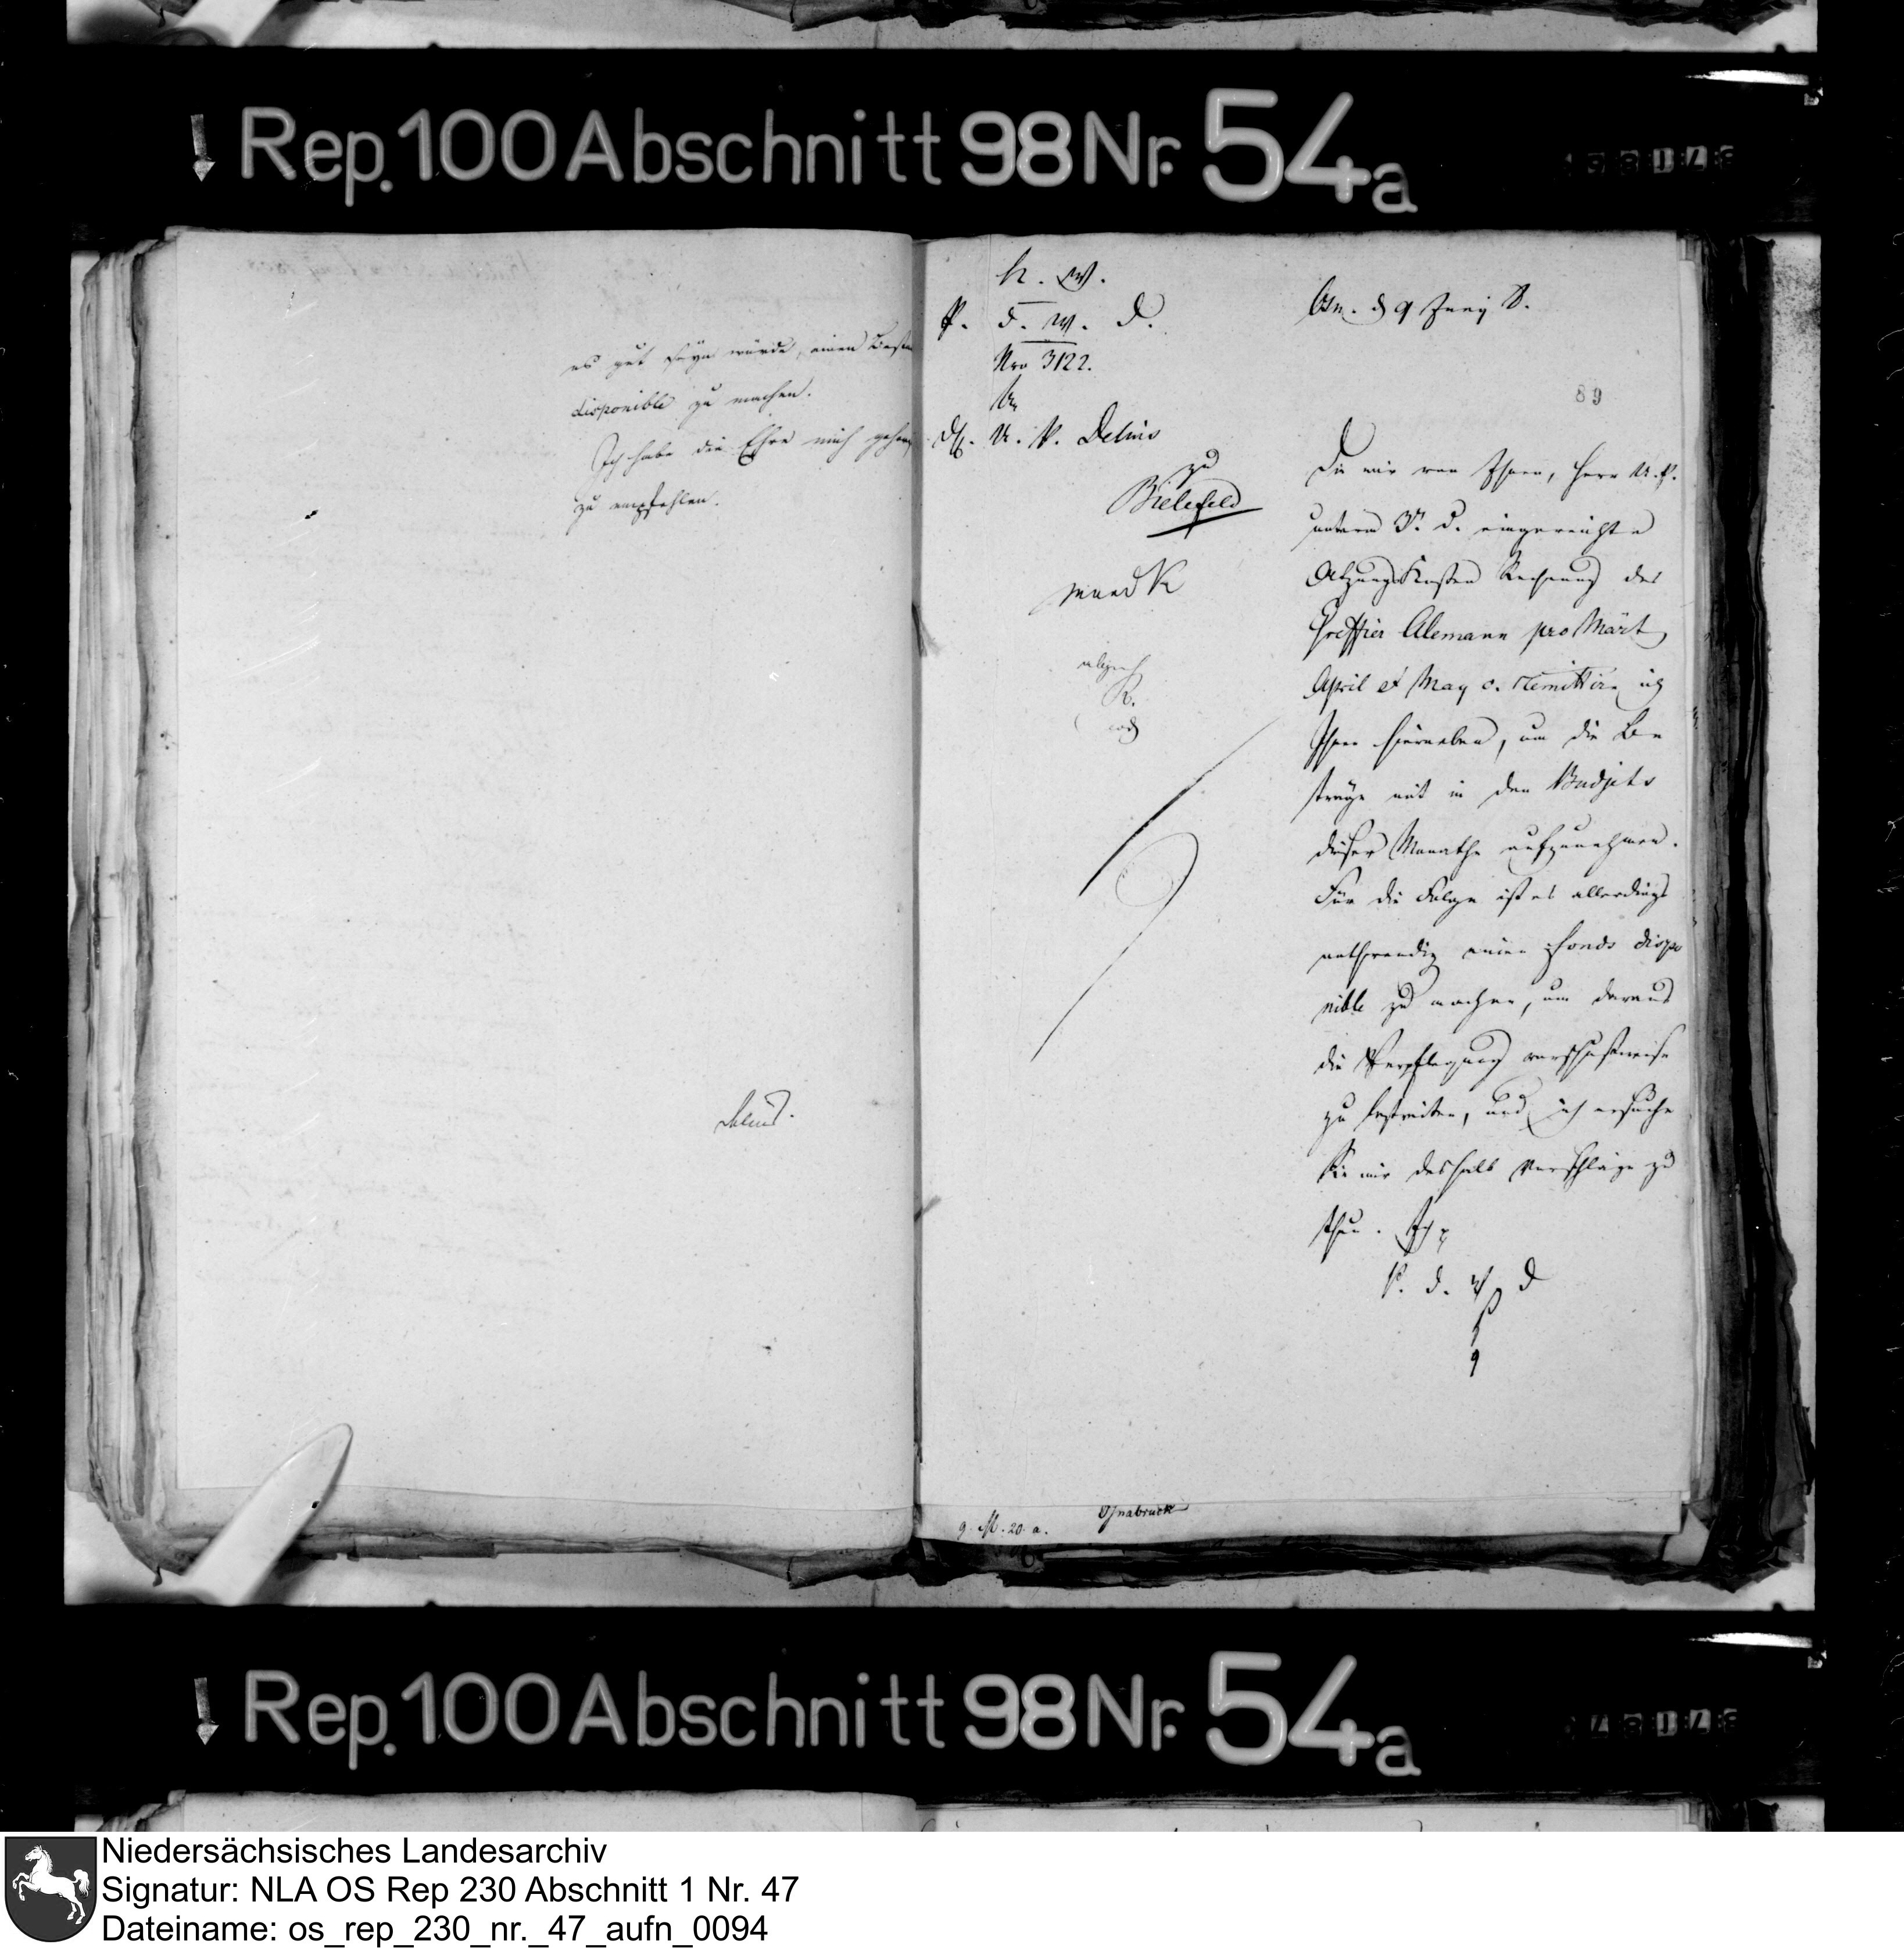 Rep. 100 Abschnitt 98 Nr. 54a
es gut seyn würde, einen
disponible zu machen.
Ich habe die Ehre mich
zu empfehlen.
Delius.
K. W.
P. d. W. D.
Nro 3122.
An
U. P. Delius
zu
Bielefeld
mund K
Osn. d 9 Juny 8.
89
Die mir von Ihnen, Herr U. P.
unterm 3n. d. eingereichte
Atzungs Kosten Rechnung des
Greffier Alemann pro März,
April et May c. remittire ich
Ihnen hierneben, um die Be
träge mit in den Budjets
dieser Monathe aufzunehmen.
Für die Folge ist es allerdings
nothwendig einen Fonds dispo
nible zu machen, um daraus
die Verpflegung vorschußweise
zu bestreiten, und ich ersuche
Sie mir deshalb Vorschläge zu
thun. Ich
P. d. W D
9
9. M. 20. a.
Osnabrück
Rep. 100 Abschnitt 98 Nr. 54a
Niedersächsisches Landesarchiv
Signatur: NLA OS Rep 230 Abschnitt 1 Nr. 47
Dateiname: os_rep_230_nr._47_aufn_0094